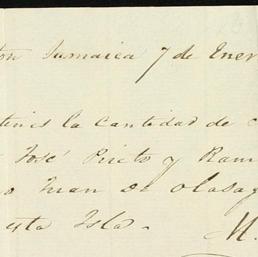 ton Jamaica 7 de Ener
la Cantidad de C
José Prieto y Ram
o Juan de Olasag
esta Isla.
M.